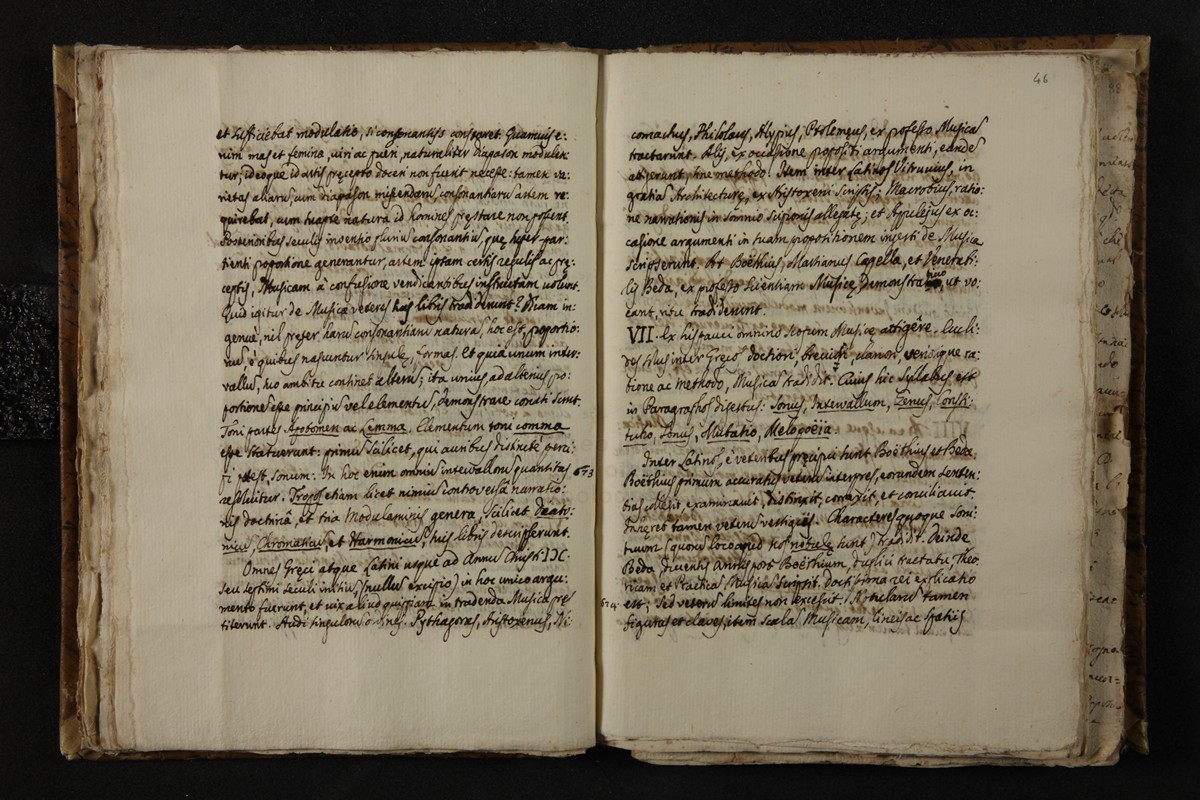 et sufficiebat modulatio, si consonantijs constaret. Quamuis e:
nim mas et femina, uiri ac pueri, naturaliter diapason modulen
tur; ideoque id artis pręcepto doceri non fuerit necesse: tamen va:
rietas aliarũ, cum diapason miscendarũ, consonantiarũ artem re:
quirebat, cum suapte natura id homines pręstare non possent.
Posterioribus seculis inventio pluriũ consonantiũ, quę super par:
tienti proportione generantur, artem ipsam certis regulis ac prę:
ceptis, Musicam à confusione vendicantibus instructam uoluit.
Quid igitur de Musica veteres suis libris tradiderunt? Etiam in:
genuè, nil pręter harũ consonantiarũ naturã, hoc est, proportio:
nes, è quibus nascuntur singulę, formas. Et quia unum inter:
vallũ, suo ambitu continet alterũ; ita unius, ad alterius pro:
portiones esse principiũ vel elementũ, demonstrare conati sunt.
Toni partes Apotomen ac Lemma. Elementum toni comma
esse statuerunt: primũ scilicet, qui auribus distinctè perci:
pi potest, sonum. In hoc enim omniũ intervallorũ quantitas 673
resoluitur. Tropos etiam licet nimiũ controversa narratio:
nis doctrinâ, et tria Modulaminis genera, scilicet Diato:
nicũ, Chromaticũ, et Harmonicũ, suis libris descripserunt.
Omnes Gręci atque Latini usque ad Annũ Christi DC.
seu septimi seculi initiũ, (nullũ excipio) in hoc unico argu:
mento fuerunt, et uix aliud quispiam in tradenda Musica pręs
titerunt. Audi singulorũ ordines. Pythagoras, Aristoxenus, Ni:
46
comachus, Philolaus, Alypius, Ptolemeus, ex professo Musicã
tractarunt. Alij, ex occasione propositi argumenti, eandẽ
attigerunt, sine methodo. Item inter Latinos Vitruvius, in
gratiã Architecturę, ex Aristoxeni scriptis; Macrobius, ratio:
ne narrationis in somnio Scipionis allegatę; et Apulejus ex oc:
casione argumenti in suam propositionem ingesti de Musica
scripserunt. At Boëthius, Martianus Capella, et Venerabi:
lis Beda, ex professo scientiam Musicę, demonstrativo, ut vo:
cant, ritu tradiderunt.
VII. Ex his pauci omnino scopum Musicę attigêre. Eucli:
des solus inter Gręcos doctiori, breuiori, clariori, verioque ra:
tione ac methodo, Musicã tradidit. Cuius hic Syllabus est
in Paragraphos digestus: Sonus, Intervallum, Genus, Consti:
tutio, Tonus, Mutatio, Melopoëia.
Inter Latinos, è veteribus pręcipui sunt Boëthius et Beda.
Boëthius primum accuratus veterũ interpres, eorundem senten:
tias collegit, examinavit, distinxit, correxit et conciliavit.
Inhęret tamen veterũ vestigijs. Characteres quoque soni:
tuum (quorũ loco apud nos notulę sunt) tradidit. Deinde
Beda ducentis annis post Boëthium, duplici tractatu, Theo:
ricam et Practicã Musicã scripsit. Doctissima rei explicatio
674 est; Sed veterũ limites non excessit: Notularũ tamen
figuras et claves, item scalã Musicam, lineis ac spatijs